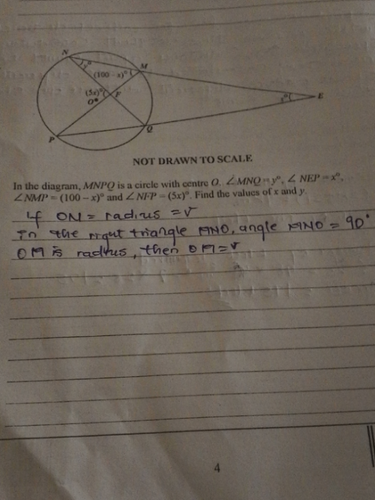 N
M
y°
(100 - x)°
(5x)°
F
O
x°
E
P
Q
NOT DRAWN TO SCALE
In the diagram, MNPQ is a circle with centre O. ∠MNQ = y°, ∠ NEP = x°,
∠NMP = (100 – x)° and ∠ NFP = (5x)°. Find the values of x and y.
If ON = radius = r
in the right triangle MNO, angle MNO = 90°
OM is radius, then OM = r
4